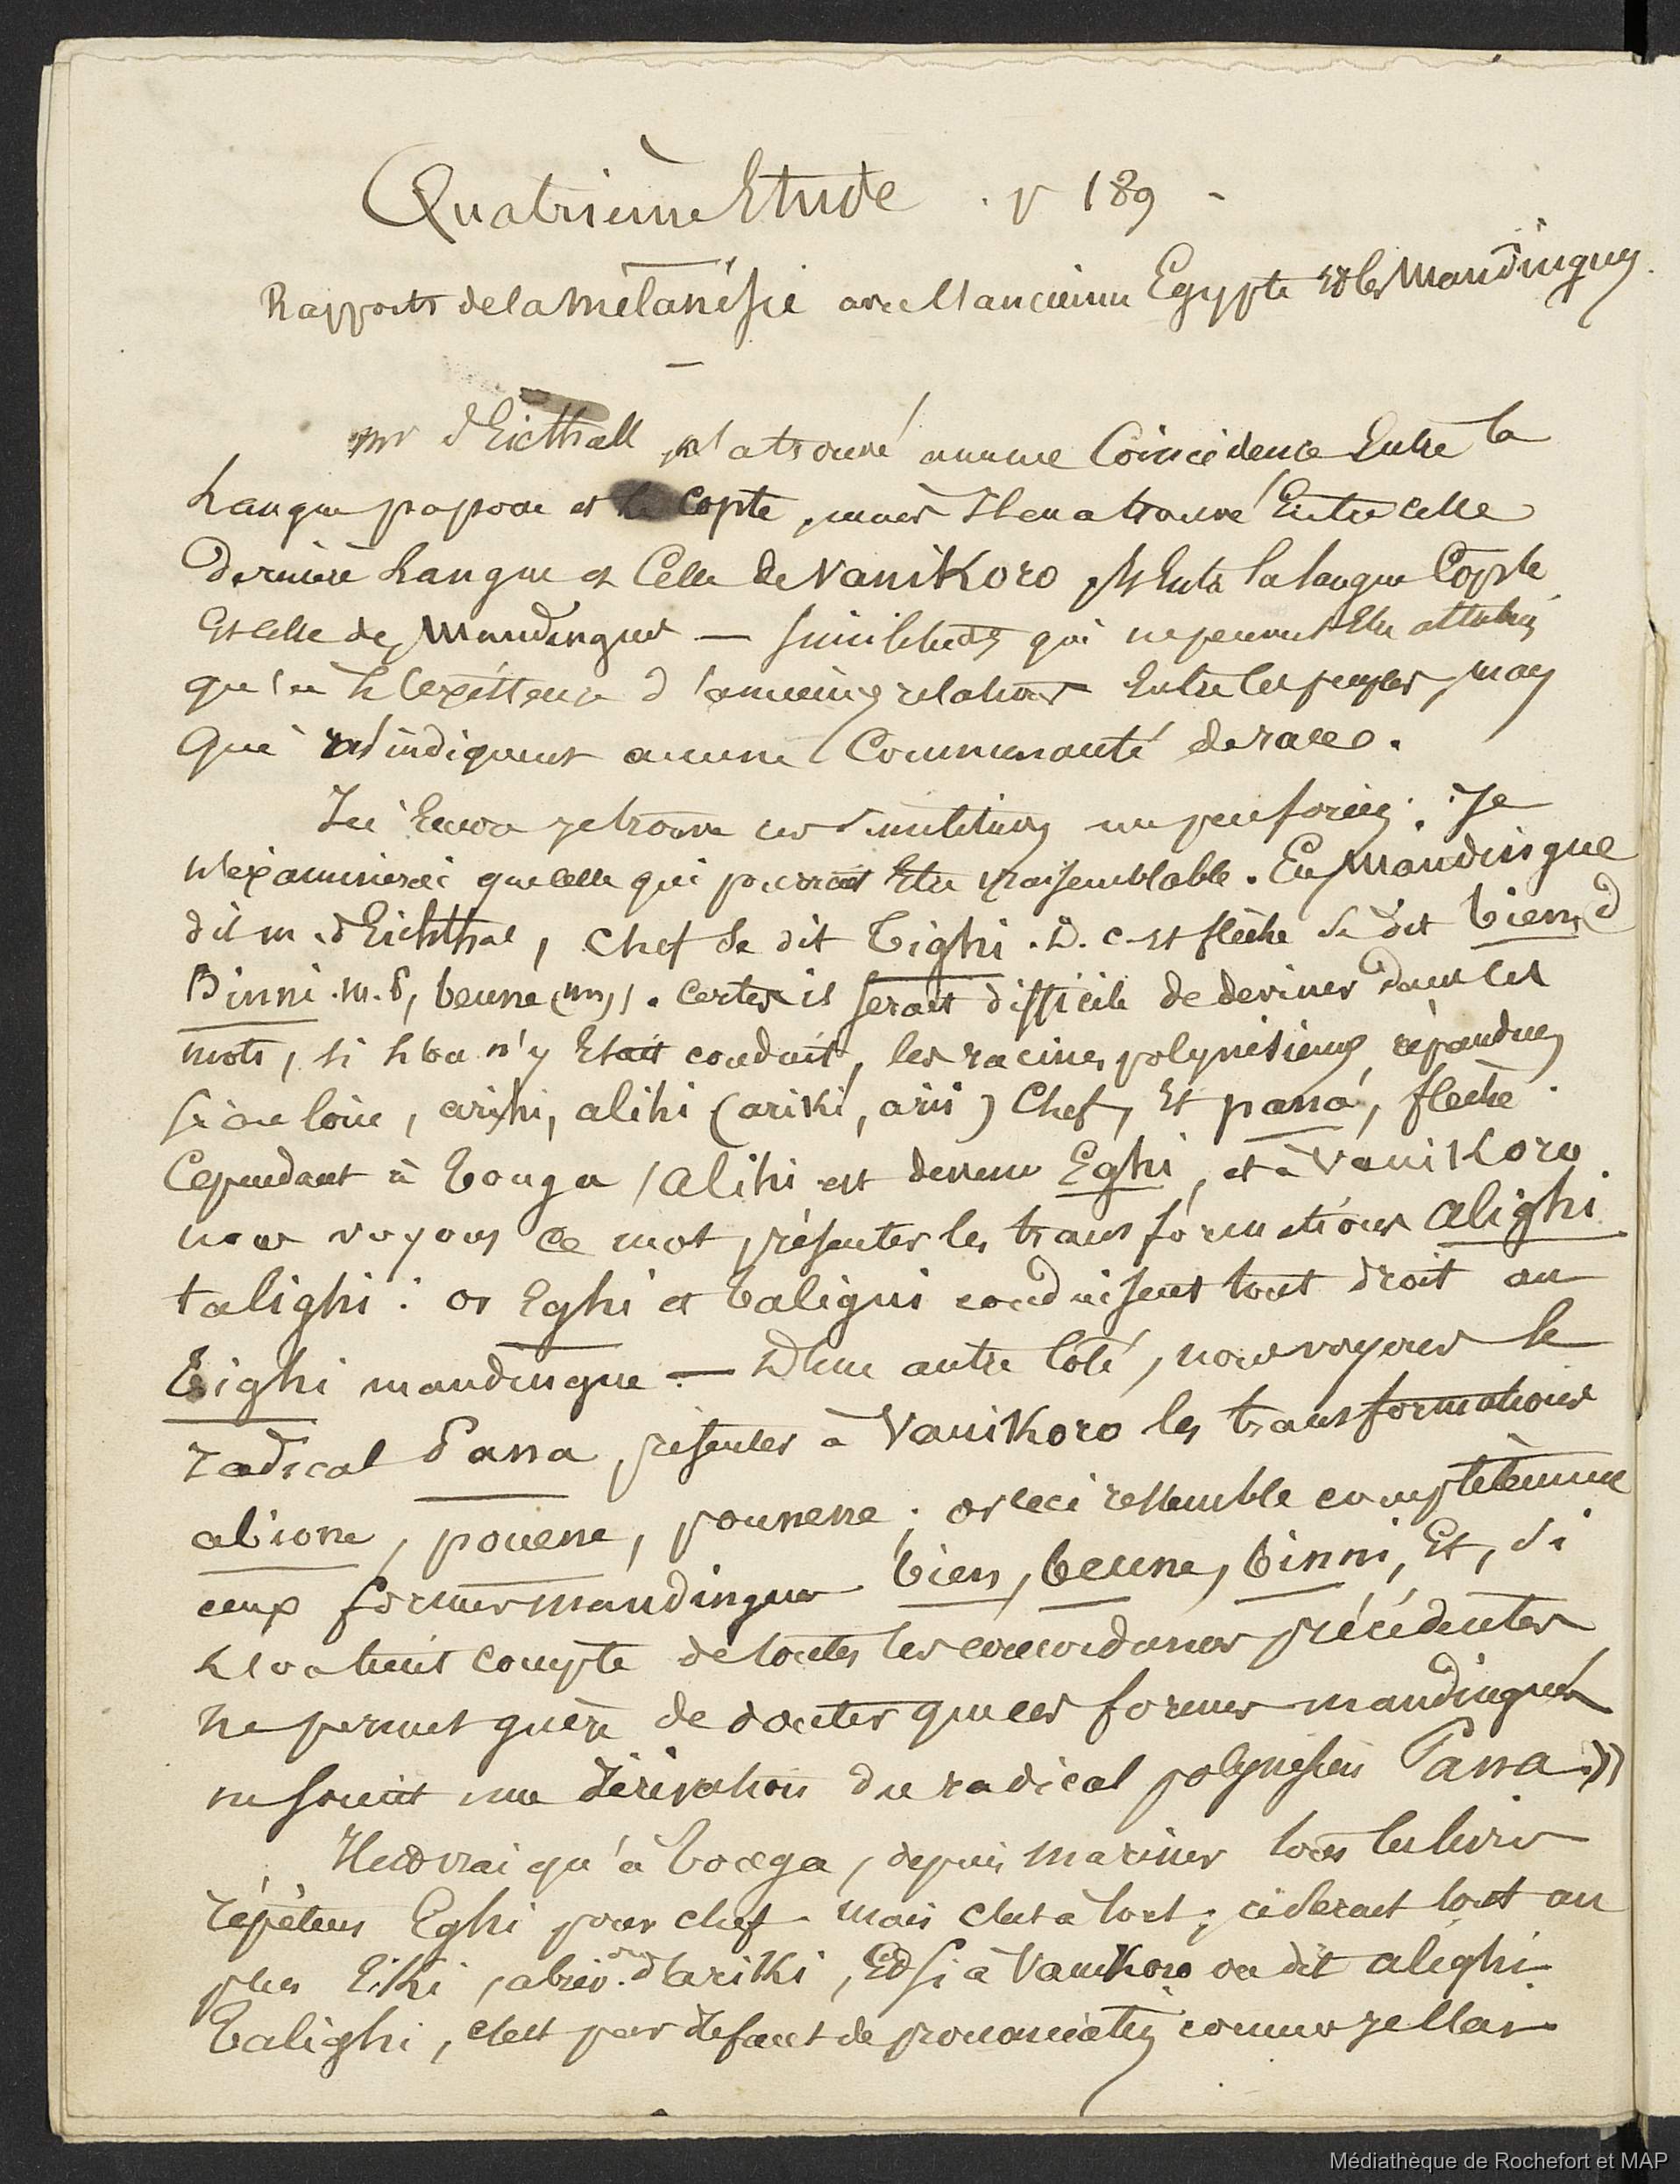 Quatrième Etude . p 189 -
Rapports de la Mélanésie avec l'ancienne Egypte et les Mandingues.
—
Mr d'Eicthall n'a trouvé aucune Coincidence Entre la
Langue papoue et le Copte, mais Il en a trouvé Entre cette
Dernière Langue et Celle de Vanikoro, et Entre la langue Copte
Et celle des Mandingues — similitudes qui ne peuvent Etre attribuées
qu'à l'existence d'anciennes relations Entre les peuples, mais
Qui n'indiquent aucune Communauté de race.
Ici Encore je trouve ces Similitudes un peu forcées. Je
N'examinerai que celle qui pourrait Etre vraisemblable. En Mandingue
dit m. d'Eichthal, chef se dit Tighi . D. c. et flèche se dit bien, d
Binni . m. p, beune (m). Certes il serait difficile de deviner dans ces
mots, si l'on n'y Etait conduit, les racines polynésiennes, répandues
si au loin, arihi, alihi (ariki, arii) Chef, Et pana, flèche.
Cependant à Tonga, alihi est devenu Eghi, et à Vanikoro
nous voyons ce mot, présenter les transformations alighi
talighi : or Eghi et taligui conduisent tout droit au
Tighi mandingue — D'une autre Côté, nous voyons le
radical Pana, présenter à Vanikoro les transformations
abione, pouene, pounene ; or ceci ressemble complètement
aux formes mandingues bien, beune, binni, Et, si
l'on tient compte de toutes les concordances précédentes
ne permet guère de douter que ces formes mandingues
ne soient une dérivation du radical polynésien Pana »
Il est vrai qu'à Tonga, depuis Mariner tous les livres
répètent Eghi pour chef mais c'est à tort ; ce serait tout au
plus Eiki, abrév. d'Ariki, Et si à Vanikoro on dit alighi
Talighi, c'est par défaut de prononciation comme je l'ai
Médiathèque de Rochefort et MAP